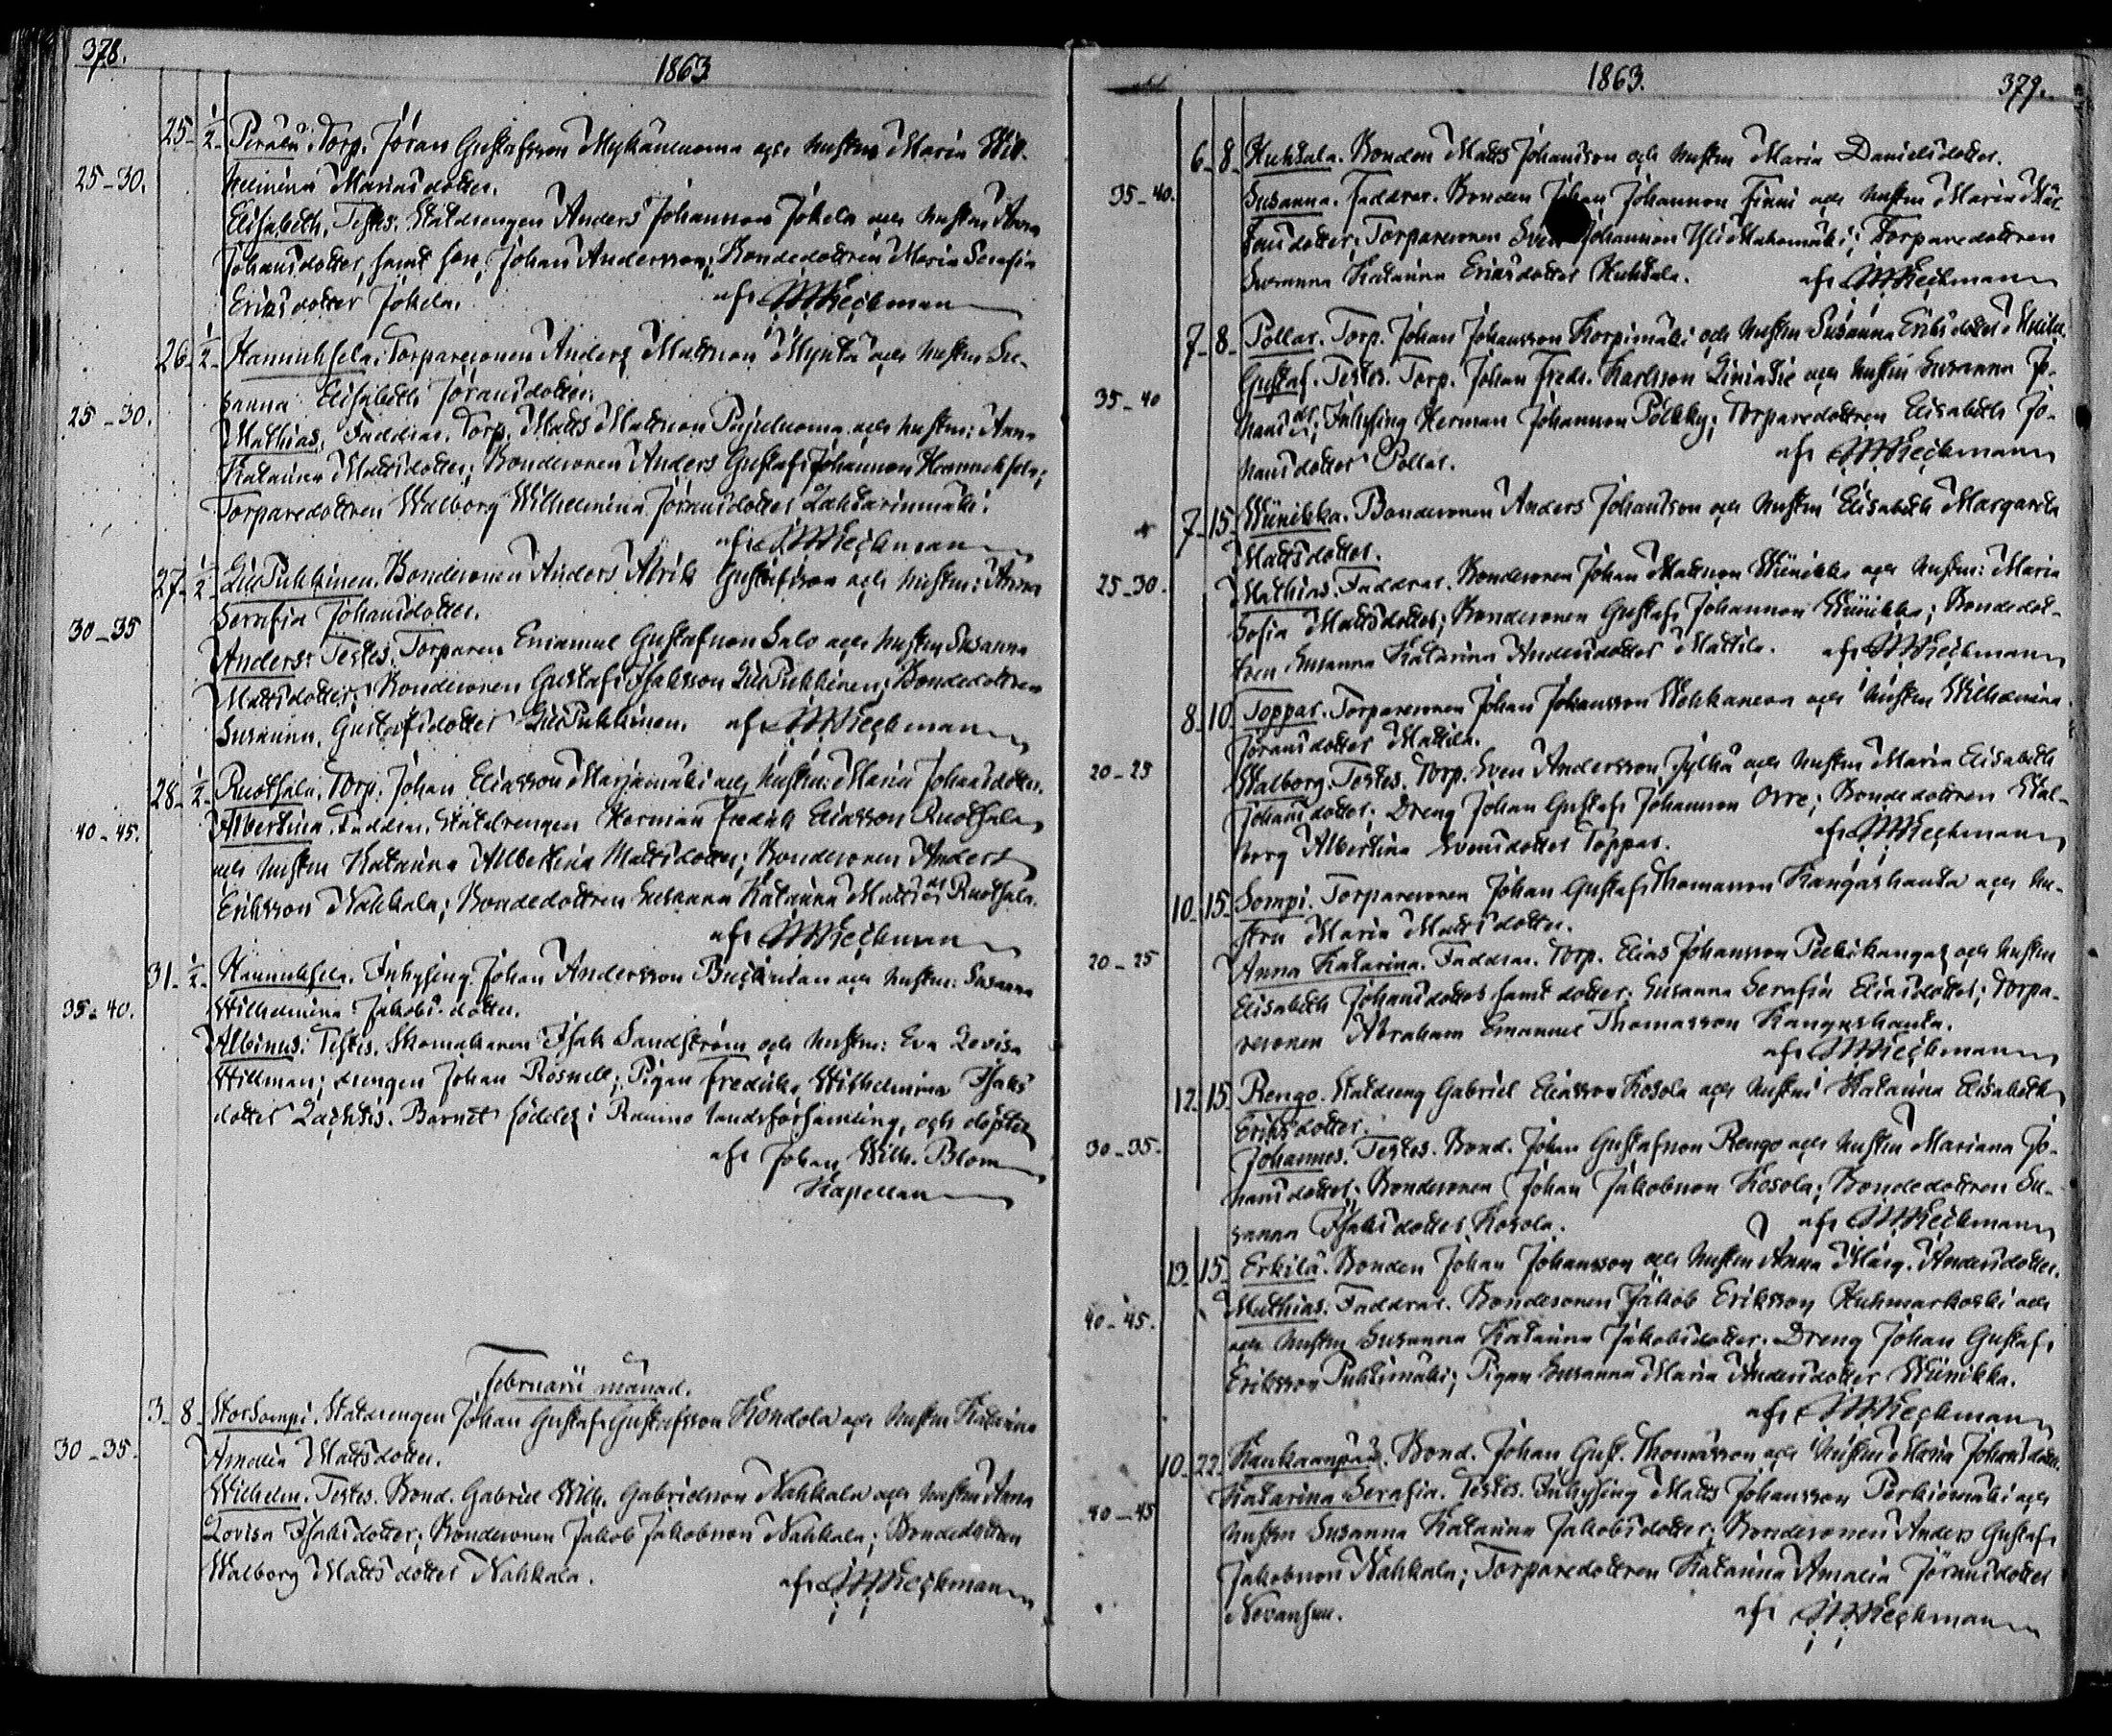 378.
1863
25 1/2 Perälä. Torp. Jöran Gustafsson Mykäneuoma och hustru Maria Wil-
25-30. helmina Mariasdotter.
Elisabeth. Testes. Statdrengen Anders Johansson Jokela och hustru Anna
Johansdotter, samt son, Johan Andersson; Bondedottren Maria Serafia
Eriksdotter Jokela. af
26 1/2 Hannuksela. Torparesonen Anders Mattsson Myntä och hustru Su-
sanna Elisabeth Jöransdotter.
25-30. Mathias. Faddrar. Torp. Matts Mattsson och hustru: Anna
Katarina Mattsdotter; Bondesonen Anders Gustaf Johansson Hannuksela;
Torparedottren Walborg Wilhelmina Jöransdotter Lahtarinmäki.
af
27 1/2 LillPukkinen. Bondesonen Anders Abrih Gustafsson och hustru: Anna
Serafia Johansdotter.
30-35 Anders: Testes. Torparen Emanuel Gustafsson Salo och hustru Susanna
Mattsdotter; Bondesonen Gustaf Isaksson LillPukkinen; Bondedottren
Susanna Gustafsdotter LillPukkinen. af
28 1/2 Ruotsala. Torp. Johan Eliasson Marjamäki och hustru: Maria Johansdotter.
40-45. Albertina. Faddrar. Statdrengen Herman Fredrik Eliasson Ruotsala
och hustru Katarina Albertina Mattsdotter; Bondesonen Anders
Eriksson Nahkala; Bondedottren Susanna Katarina Mattsdr Ruotsala.
af
31 1/2 Hannuksela. Inhysing Johan Andersson och hustru: Susanna
Wilhelmina Jakobs-dotter.
35-40. Albinus: Testes. Skomakaren Isak Sandström och hustru: Eva Lovisa
Willman; drengen Johan Rosnell; Pigan Fredrika Wilhelmina Isaks
dotter Lachtis. Barnet föddes i Raumo landsförsamling, och döptes
af Johan Wilh. Blom
Kapellan
Februarii månad.
3 8 StorSompi. Statdrengen Johan Gustaf Gustafsson Kondola och hustru Katarina
30-35. Amalia Mattsdotter.
Wilhelm. Testes. Bond. Gabriel Wilh. Gabrielsson Nahkala och hustru Anna
Lovisa Isaksdotter; Bondesonen Jakob Jakobsson Nahkala; Bondedottren
Walborg Mattsdotter Nahkala. af
1863.
379.
6 8 Huhtala. Bonden Matts Johansson och hustru Maria Danielsdotter.
35-40. Susanna. Faddrar. Bonden Johan Johansson Finni och hustru Maria Mat-
dotter; Torparesonen Sven Johansson; Torparedottren
Susanna Katarina Eriksdotter Huhtala. af
7 8 Pollar. Torp. Johan Johansson Korpimäki och hustru Susanna Eriksdotter
35-40 Gustaf. Testes. Torp. Johan Fredr. Karlsson och hustru Susanna Jo-
hansdr; Inhysing Herman Johansson Pölkky; Torparedottren Elisabeth Jo-
hansdotter Pollar. af
7 15 Wiinikka. Bondesonen Anders Johansson och hustru Elisabeth Margareta
Mattsdotter.
25-30. Mathias. Faddrar. Bondesonen Johan Mattsson Wiinikka och hustru: Maria
Sofia Mattsdotter; Bondesonen Gustaf Johansson Wiinikka; Bondedot-
tren Susanna Katarina Andersdotter Mattila. af
8 10 Toppar. Torparesonen Johan Johansson och hustru Wilhelmina
Jöransdotter Mattila.
20-25 Walborg. Testes. Torp. Sven Andersson Jylhä och hustru Maria Elisabeth
Johansdotter; Dreng Johan Gustaf Johansson Orre; Bondedottren Wal-
borg Albertina Svensdotter Toppar. af
10 15 Sompi. Torparesonen Johan Gustaf Thomasson Kangashauta och hu-
stru Maria Mattsdotter.
20-25 Anna Katarina. Faddrar. Torp. Elias Johansson Pitkäkangas och hustru
Elisabeth Johansdotter samt dotter: Susanna Serafia Eliasdotter; Torpa-
resonen Abraham Emanuel Thomasson Kangashauta.
af
12 15 Rengo. Statdreng Gabriel Eliasson Kosola och hustru Katarina Elisabeth
Eriksdotter.
30-35. Johannes. Testes. Bond. Johan Gustafsson Rengo och hustru Mariana Jo-
hansdotter; Bondesonen Johan Jakobsson Kosola; Bondedottren Su-
sanna Isaksdotter Kosola. af
13 15 Erkilä. Bonden Johan Johansson och hustru Anna Marg. Andersdotter.
40-45. Mathias. Faddrar. Bondesonen Jakob Eriksson Kuhmarkoski och
och hustru Susanna Katarina Jakobsdotter; Dreng Johan Gustaf
Eriksson Puhtimäki; Pigan Susanna Maria Andersdotter Wiinikka.
af
10 22 Kankaanpää. Bond. Johan Gust. Thomasson och hustru Maria Johansdotter.
40-45 Katarina Serafia. Testes. Inhysing Matts Johansson Perkiömäki och
hustru Susanna Katarina Jakobsdotter; Bondesonen Anders Gustaf
Jakobsson Nahkala; Torparedottren Katarina Amalia Jöransdotter
Nevansuu. af